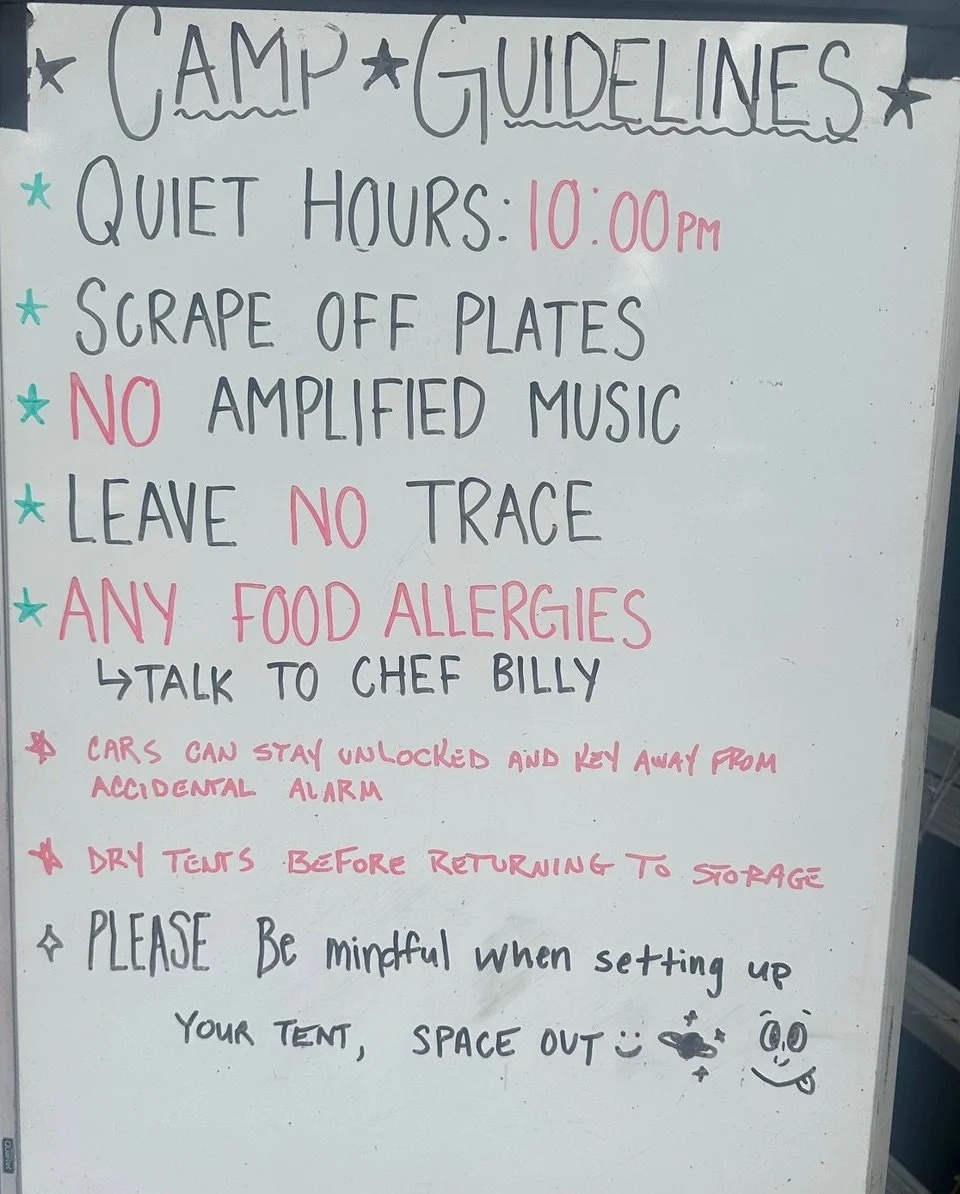 ★ CAMP ★ GUIDELINES ★
★ QUIET HOURS: 10:00PM
★ SCRAPE OFF PLATES
★ NO AMPLIFIED MUSIC
★ LEAVE NO TRACE
★ ANY FOOD ALLERGIES
↳ TALK TO CHEF BILLY
★ CARS CAN STAY UNLOCKED AND KEY AWAY FROM
ACCIDENTAL ALARM
★ DRY TENTS BEFORE RETURNING TO STORAGE
✧ PLEASE Be mindful when setting up
YOUR TENT, SPACE OUT
Quartet